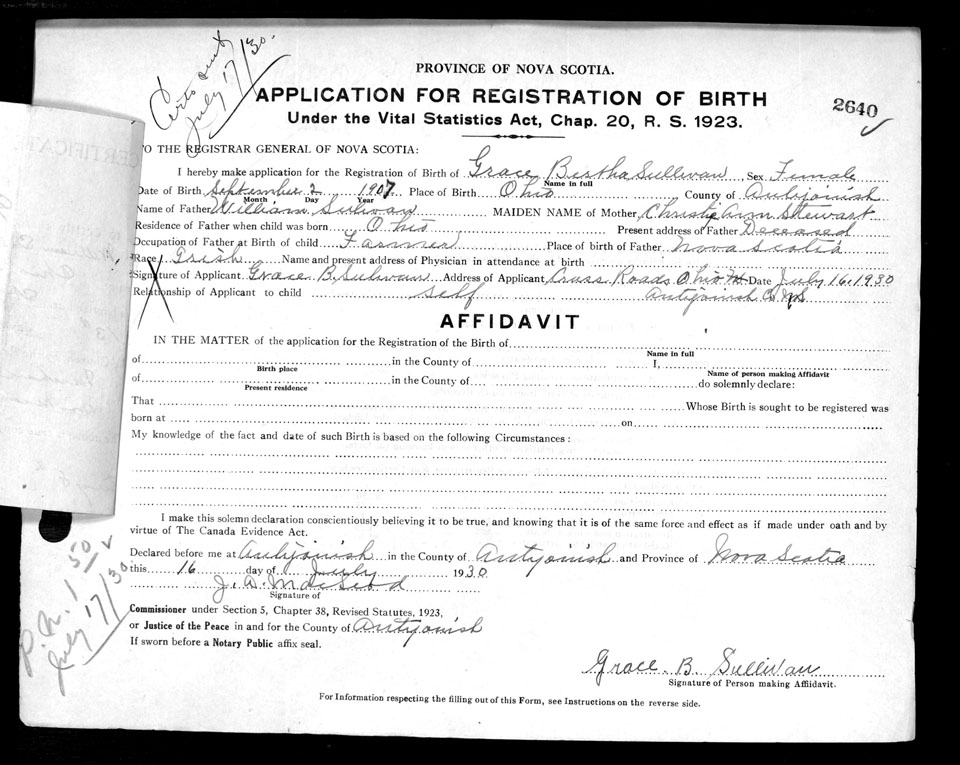 Certs sent
July 17/30.
PROVINCE OF NOVA SCOTIA.
APPLICATION FOR REGISTRATION OF BIRTH
2640
Under the Vital Statistics Act, Chap. 20, R. S. 1923.
TO THE REGISTRAR GENERAL OF NOVA SCOTIA:
I hereby make application for the Registration of Birth of Grace Bertha Sullivan, Sex Female
Name in full
Date of Birth September 2 1907 Place of Birth Ohio County of Antigonish
Month Day Year
Name of Father William Sullivan MAIDEN NAME of Mother, Christie Ann Stewart
Residence of Father when child was born Ohio Present address of Father Deceased
Occupation of Father at Birth of child Farmer Place of birth of Father Nova Scotia
Race Irish Name and present address of Physician in attendance at birth
Signature of Applicant Grace B. Sullivan Address of Applicant Cross Roads Ohio Date July 16, 1930
Relationship of Applicant to child self Antigonish Co. NS
AFFIDAVIT
IN THE MATTER of the application for the Registration of the Birth of
Name in full
of in the County of I,
Birth place Name of person making Affidavit
of in the County of do solemnly declare:
Present residence
That Whose Birth is sought to be registered was
born at on
My knowledge of the fact and date of such Birth is based on the following Circumstances:
I make this solemn declaration conscientiously believing it to be true, and knowing that it is of the same force and effect as if made under oath and by
virtue of The Canada Evidence Act.
Declared before me at Antigonish in the County of Antigonish and Province of Nova Scotia
this 16 day of July 1930
Signature of
Commissioner under Section 5, Chapter 38, Revised Statutes, 1923,
or Justice of the Peace in and for the County of Antigonish
If sworn before a Notary Public affix seal.
P.N. 1 50
July 17/30
Grace B. Sullivan
Signature of Person making Affidavit.
For Information respecting the filling out of this Form, see Instructions on the reverse side.